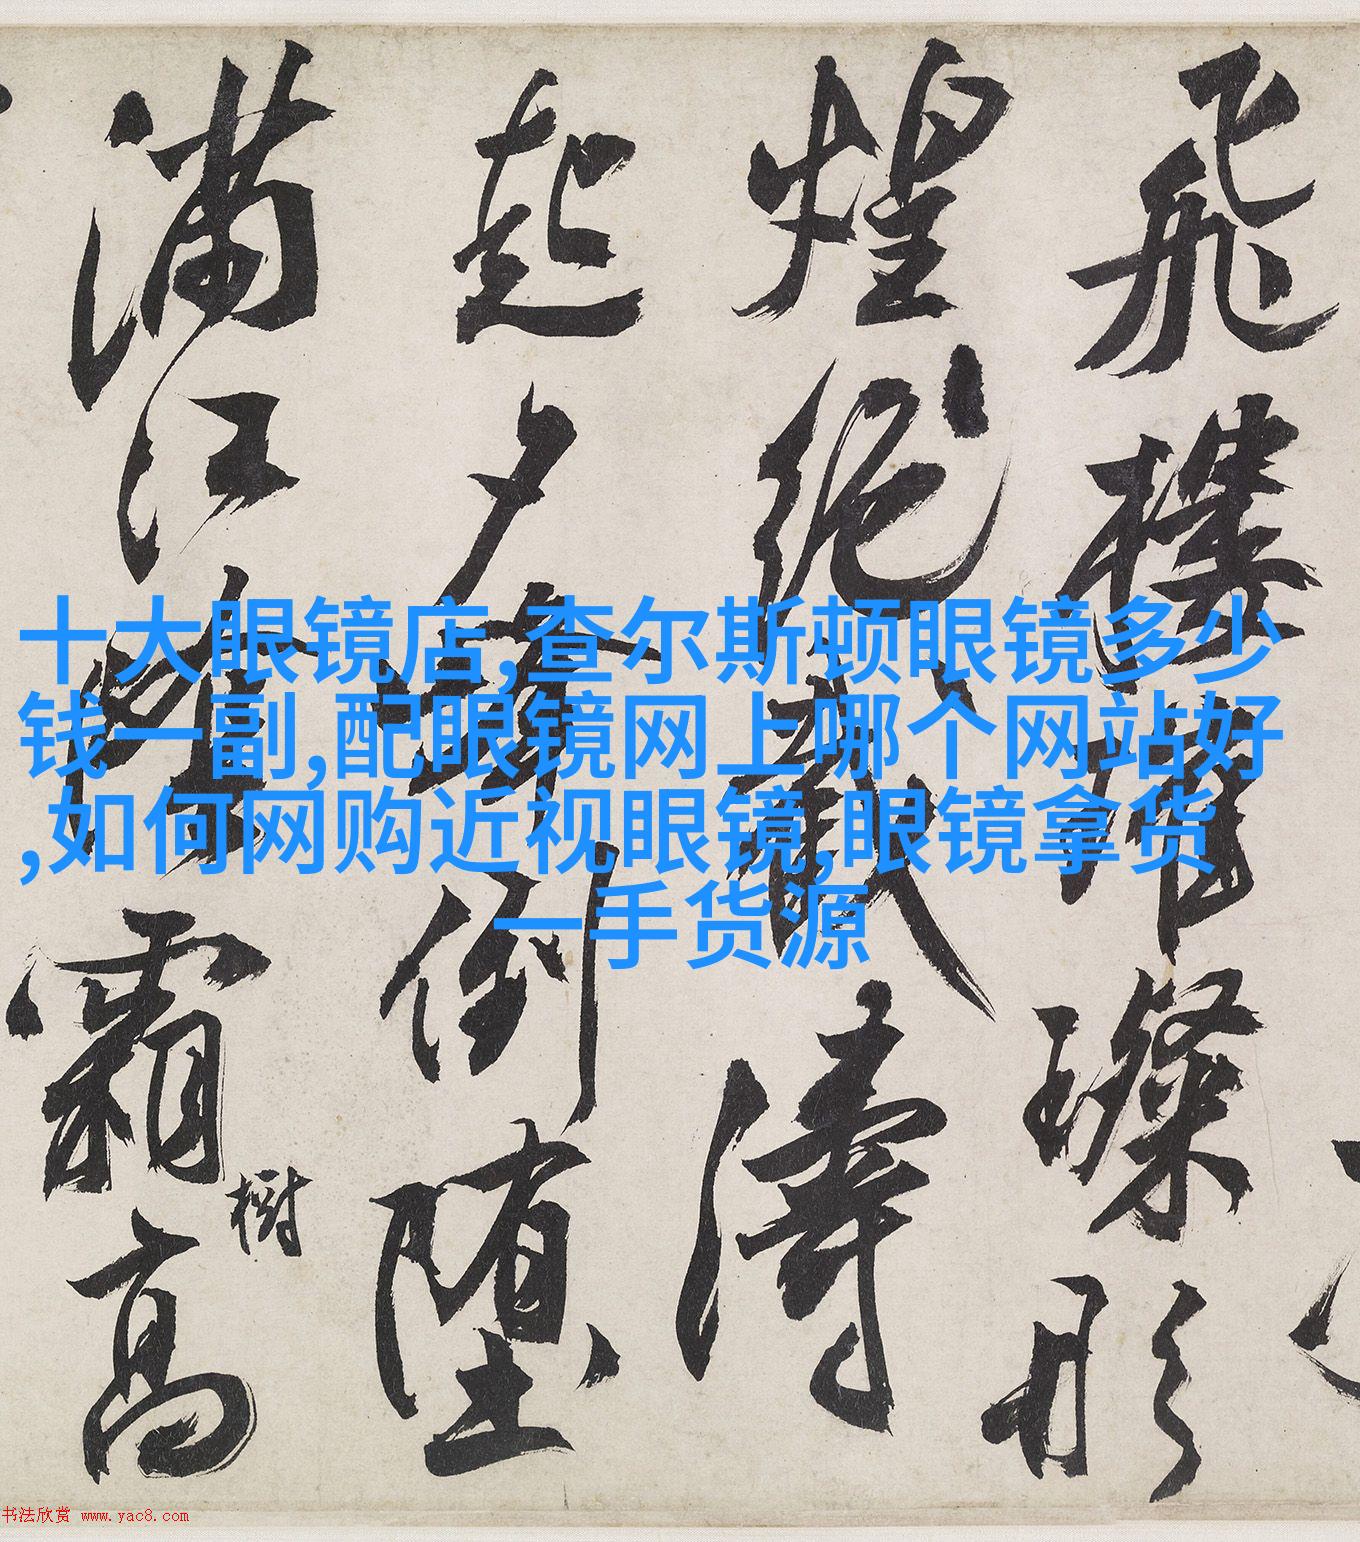 飛樓璨彤
煌絕巘濤
起夕倒墮
滿江霜高
樹
十大眼镜店,查尔斯顿眼镜多少
钱一副,配眼镜网上哪个网站好
,如何网购近视眼镜,眼镜拿货
一手货源
书法欣赏 www.yac8.com